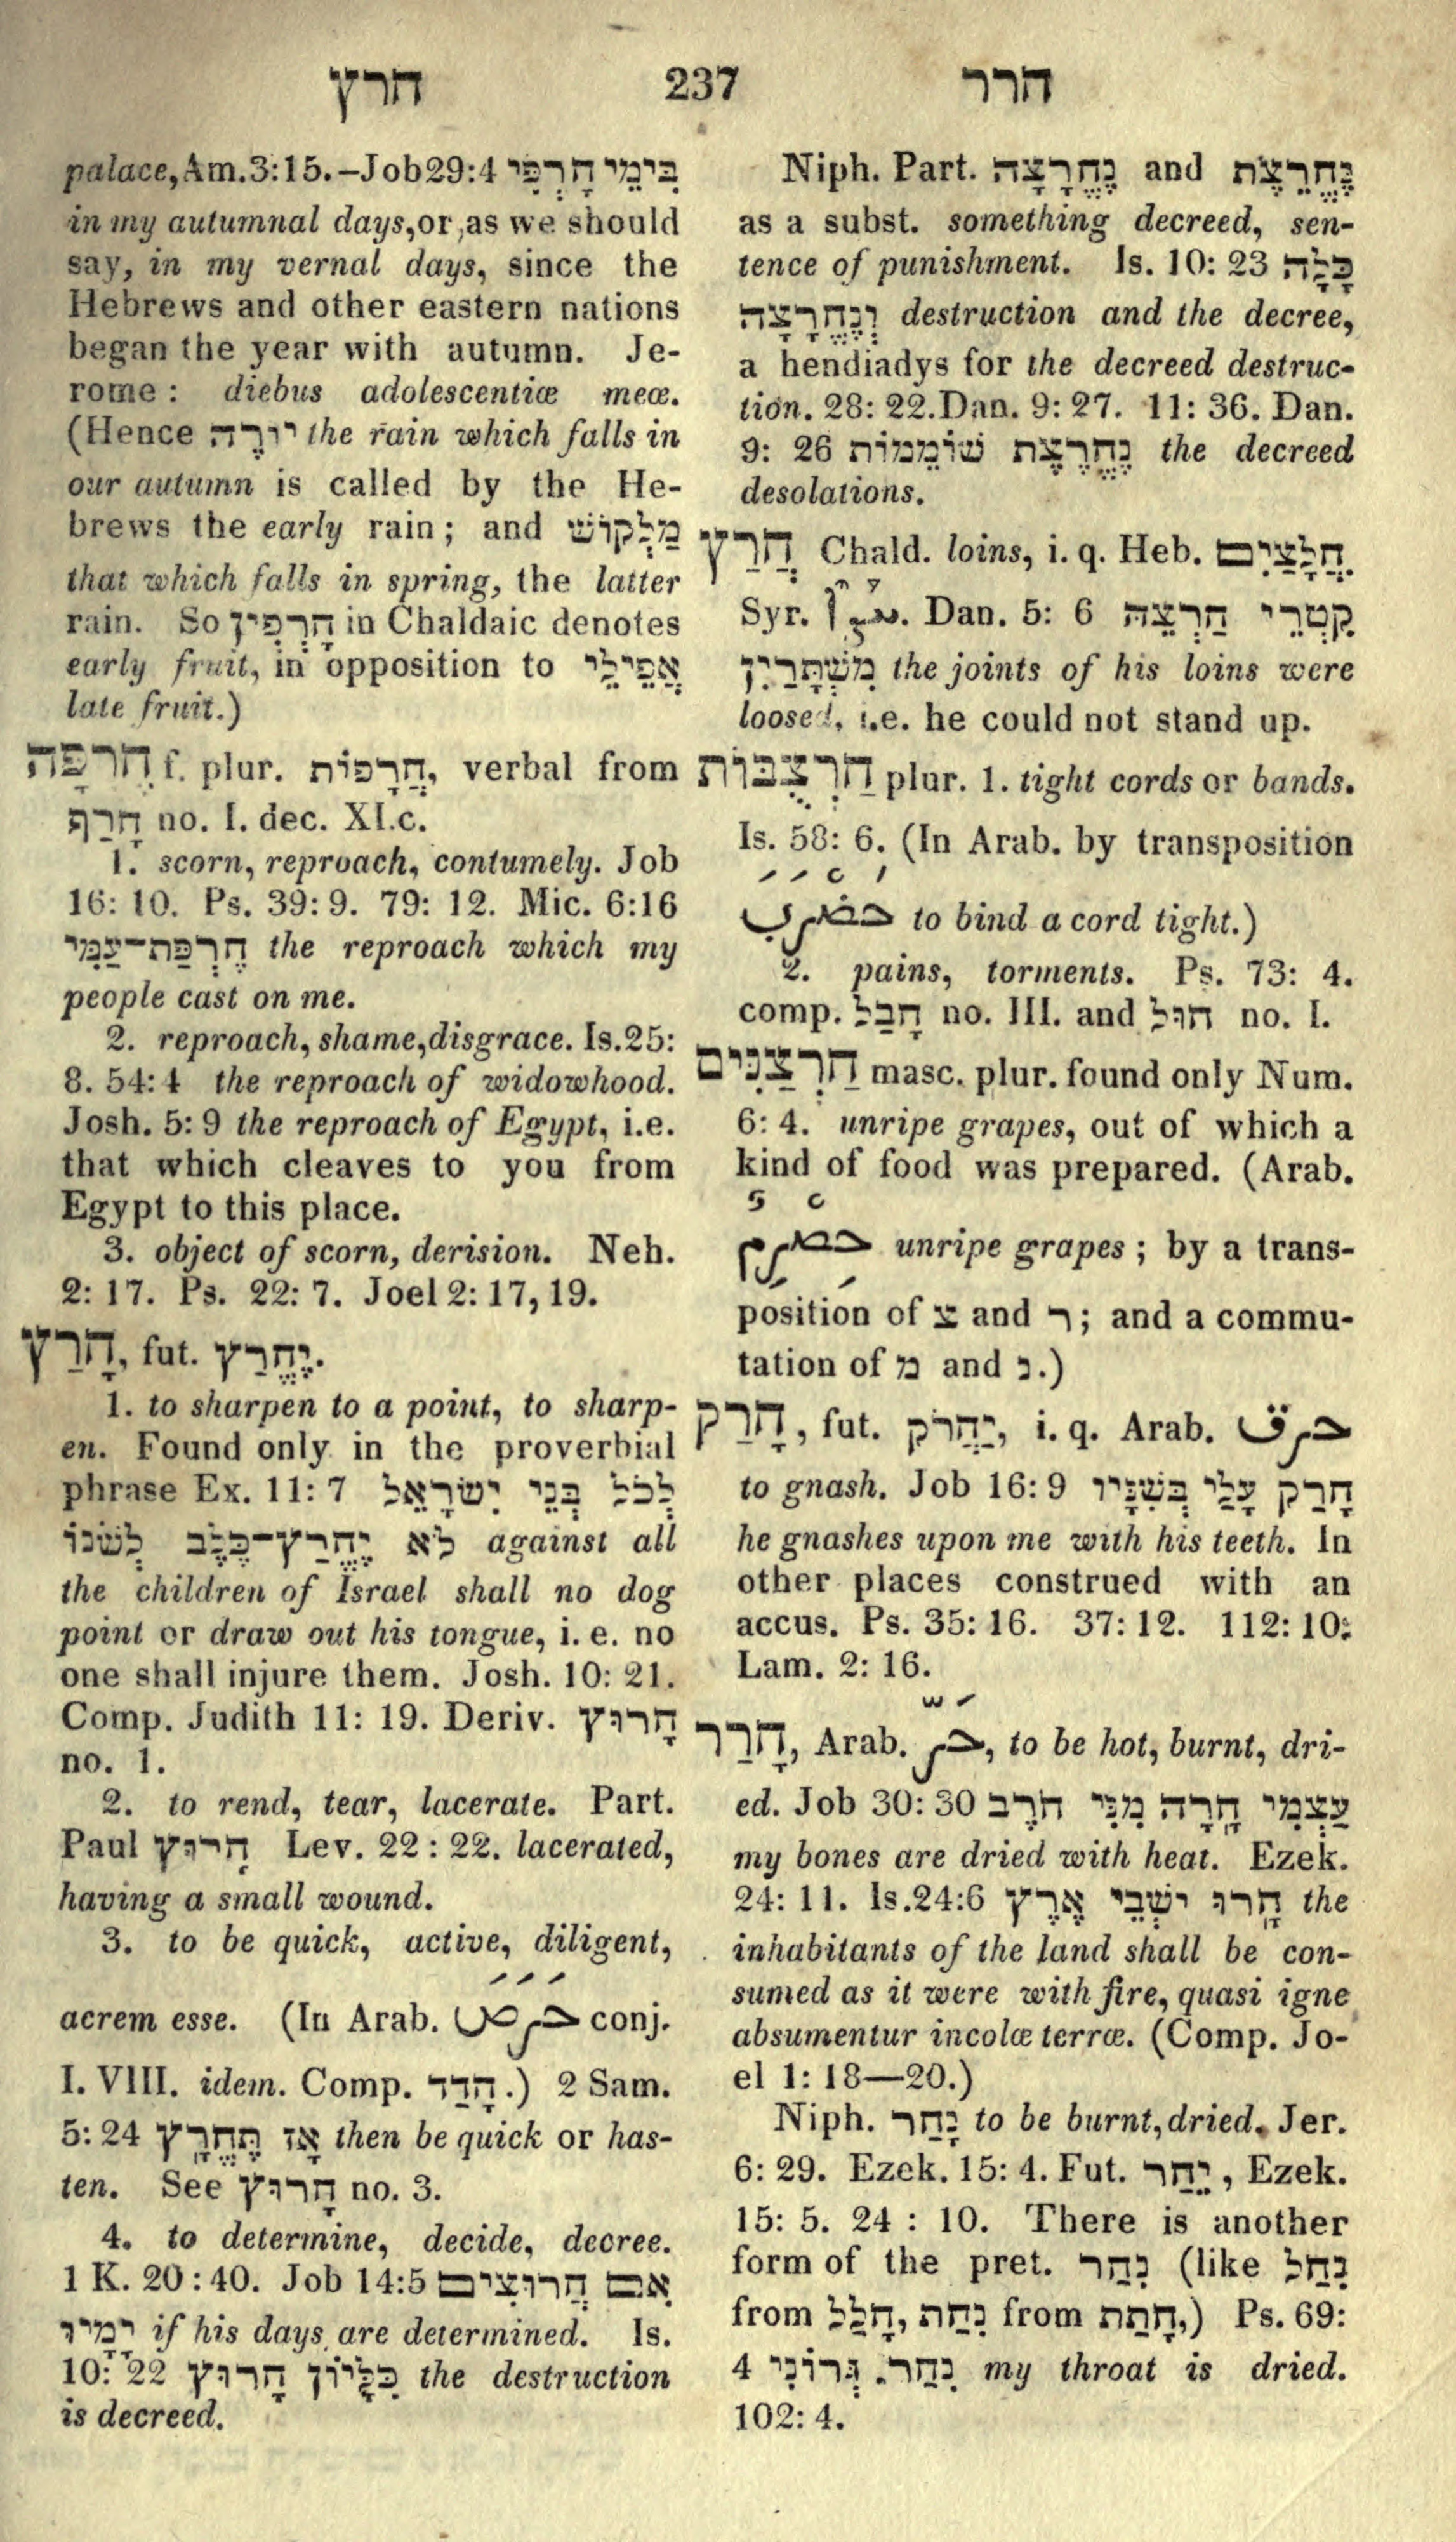 חרץ 237 חרר
palace, Am.3:15.–Job29:4 בִּימֵי חָרְפִּי
in my autumnal days, or, as we should
say, in my vernal days, since the
Hebrews and other eastern nations
began the year with autumn. Je-
rome : diebus adolescentiæ meæ.
(Hence יוֹרֶה the rain which falls in
our autumn is called by the He-
brews the early rain ; and מַלְקוֹשׁ
that which falls in spring, the latter
rain. So חָרְפִין in Chaldaic denotes
early fruit, in opposition to אֲפֵילֵי
late fruit.)
חֶרְפָּה f. plur. חֲרָפוֹת, verbal from
חָרַף no. I. dec. XI.c.
1. scorn, reproach, contumely. Job
16: 10. Ps. 39: 9. 79: 12. Mic. 6:16
חֶרְפַּת־עַמִּי the reproach which my
people cast on me.
2. reproach, shame, disgrace. Is.25:
8. 54: 4 the reproach of widowhood.
Josh. 5: 9 the reproach of Egypt, i.e.
that which cleaves to you from
Egypt to this place.
3. object of scorn, derision. Neh.
2: 17. Ps. 22: 7. Joel 2: 17, 19.
חָרַץ, fut. יֶחֱרַץ.
1. to sharpen to a point, to sharp-
en. Found only in the proverbial
phrase Ex. 11: 7 לְכֹל בְּנֵי יִשְׂרָאֵל
לֹא יֶחֱרַץ־כֶּלֶב לְשֹׁנוֹ against all
the children of Israel shall no dog
point or draw out his tongue, i. e. no
one shall injure them. Josh. 10: 21.
Comp. Judith 11: 19. Deriv. חָרוּץ
no. 1.
2. to rend, tear, lacerate. Part.
Paul חָרוּץ Lev. 22 : 22. lacerated,
having a small wound.
3. to be quick, active, diligent,
acrem esse. (In Arab. حَرَصَ conj.
I. VIII. idem. Comp. הָדַד.) 2 Sam.
5: 24 אָז תֶּחֱרָץ then be quick or has-
ten. See חָרוּץ no. 3.
4. to determine, decide, decree.
1 K. 20 : 40. Job 14:5 אִם חֲרוּצִים
יָמָיו if his days are determined. Is.
10: 22 כִּלָּיוֹן חָרוּץ the destruction
is decreed.
Niph. Part. נֶחֱרָצָה and נֶחֱרֶצֶת
as a subst. something decreed, sen-
tence of punishment. Is. 10: 23 כָּלָה
וְנֶחֱרָצָה destruction and the decree,
a hendiadys for the decreed destruc-
tion. 28: 22. Dan. 9: 27. 11: 36. Dan.
9: 26 נֶחֱרֶצֶת שׁוֹמֵמוֹת the decreed
desolations.
חֲרַץ Chald. loins, i. q. Heb. חֲלָצַיִם.
Syr. . Dan. 5: 6 קִטְרֵי חַרְצֵהּ
מִשְׁתָּרַיִן the joints of his loins were
loosed, i.e. he could not stand up.
חַרְצֻבּוֹת plur. 1. tight cords or bands.
Is. 58: 6. (In Arab. by transposition
حَضْرَبَ to bind a cord tight.)
2. pains, torments. Ps. 73: 4.
comp. חָבַל no. III. and חוּל no. I.
חַרְצַנִּים masc. plur. found only Num.
6: 4. unripe grapes, out of which a
kind of food was prepared. (Arab.
حِصْرِمٌ unripe grapes ; by a trans-
position of צ and ר ; and a commu-
tation of מ and נ.)
חָרַק, fut. יַחֲרֹק, i. q. Arab. حرق
to gnash. Job 16: 9 חָרַק עָלַי בְּשִׁנָּיו
he gnashes upon me with his teeth. In
other places construed with an
accus. Ps. 35: 16. 37: 12. 112: 10:
Lam. 2: 16.
חָרַר, Arab. حَرّ, to be hot, burnt, dri-
ed. Job 30: 30 עַצְמִי חָרָה מִנִּי חֹרֶב
my bones are dried with heat. Ezek.
24: 11. Is.24:6 חָרוּ יֹשְׁבֵי אֶרֶץ the
inhabitants of the land shall be con-
sumed as it were with fire, quasi igne
absumentur incolæ terræ. (Comp. Jo-
el 1: 18—20.)
Niph. נָחַר to be burnt, dried. Jer.
6: 29. Ezek. 15: 4. Fut. יֵחַר , Ezek.
15: 5. 24 : 10. There is another
form of the pret. נִחַר (like נִחַל
from חָלַל, נִחַת from חָתַת,) Ps. 69:
4 נִחַר גְּרוֹנִי my throat is dried.
102: 4.